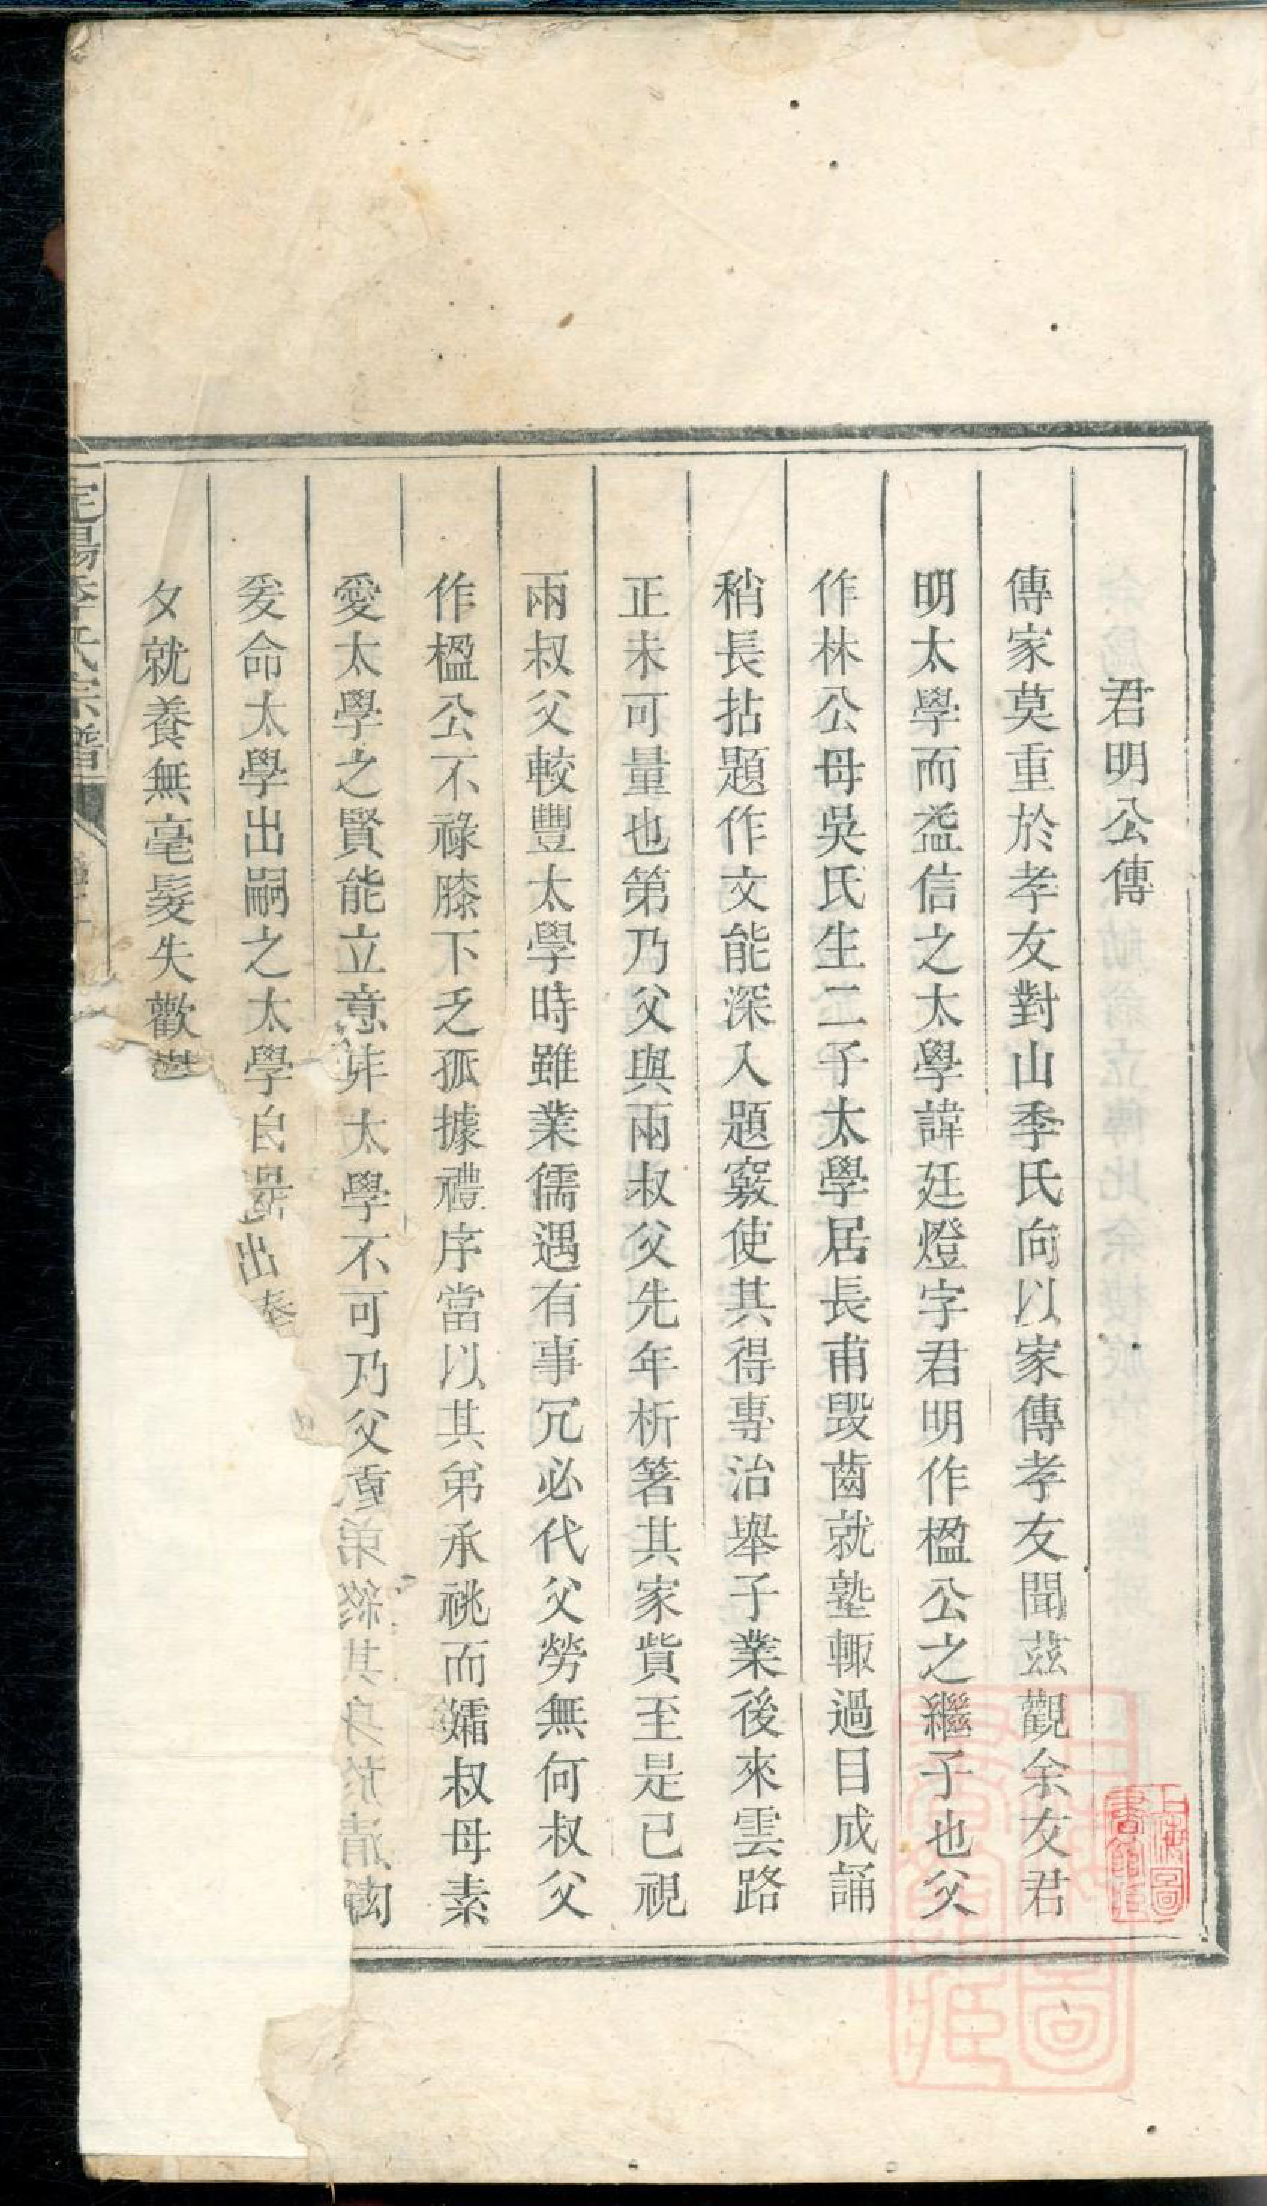 君明公傳
傳家莫重於孝友對山季氏向以家傳孝友聞茲觀余友君
明太學而益信之太學諱廷燈字君明作楹公之繼子也父
作林公母吳氏生二子太學居長甫毀齒就塾輒過目成誦
稍長拈題作文能深入題竅使其得專治舉子業後來雲路
正未可量也第乃父與兩叔父先年析箸其家貲至是已視
兩叔父較豐太學時雖業儒遇有事冗必代父勞無何叔父
作楹公不祿膝下乏孤據禮序當以其弟承祧而孀叔母素
愛太學之賢能立意非太學不可乃父重弟終其身於清
爰命太學出嗣之太學自出奉
夕就養無毫髮失歡
定陽季氏宗譜
上海圖書館藏
上海圖書館藏